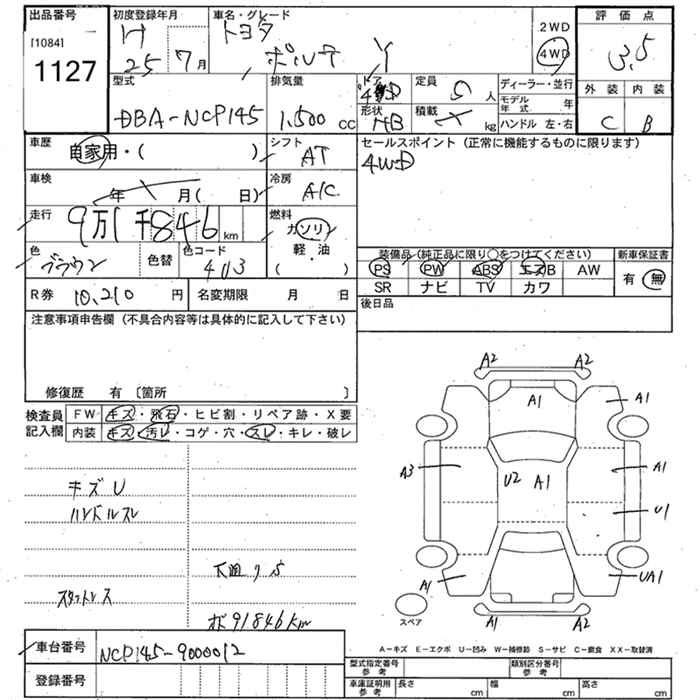 出品番号
[1084]
1127
初度登録年月
H
25 7月
車名・グレード
トヨタ
ポルテ Y
2WD
4WD
評価点
3.5
外装 内装
C B
型式
DBA-NCP145
排気量
1,500 cc
ドア
4
形状
HB
定員
5 人
積載
kg
ディーラー・並行
モデル年式 年
ハンドル 左・右
車歴
自家用・( )
シフト
AT
セールスポイント (正常に機能するものに限ります)
4WD
車検
年 月( 日)
冷房
A/C
走行
9万1千846 km
燃料
ガソリン
軽・油
( )
色
ブラウン
色替
色コード
4U3
装備品 (純正品に限り○をつけてください)
PS PW ABS エアB AW
SR ナビ TV カワ
新車保証書
有・無
R券 10,210 円
名変期限 月 日
後日品
注意事項申告欄 (不具合内容等は具体的に記入して下さい)
修復歴 有 〔箇所 〕
検査員記入欄
FW キズ・飛石・ヒビ割・リペア跡・X要
内装 キズ・汚レ・コゲ・穴・スレ・キレ・破レ
キズU
ハンドルスレ
スタットレス
下廻りS
メ 91846km
A2 A2
A1 A1
A3 U2 A1 A1
U1
A1 UA1
A1 A2
スペア
A-キズ E-エクボ U-凹み W-補修跡 S-サビ C-腐食 XX-取替済
車台番号
NCP145-9000012
登録番号
型式指定番号 参考
類別区分番号 参考
車庫証明用 参考
長さ cm 幅 cm 高さ cm